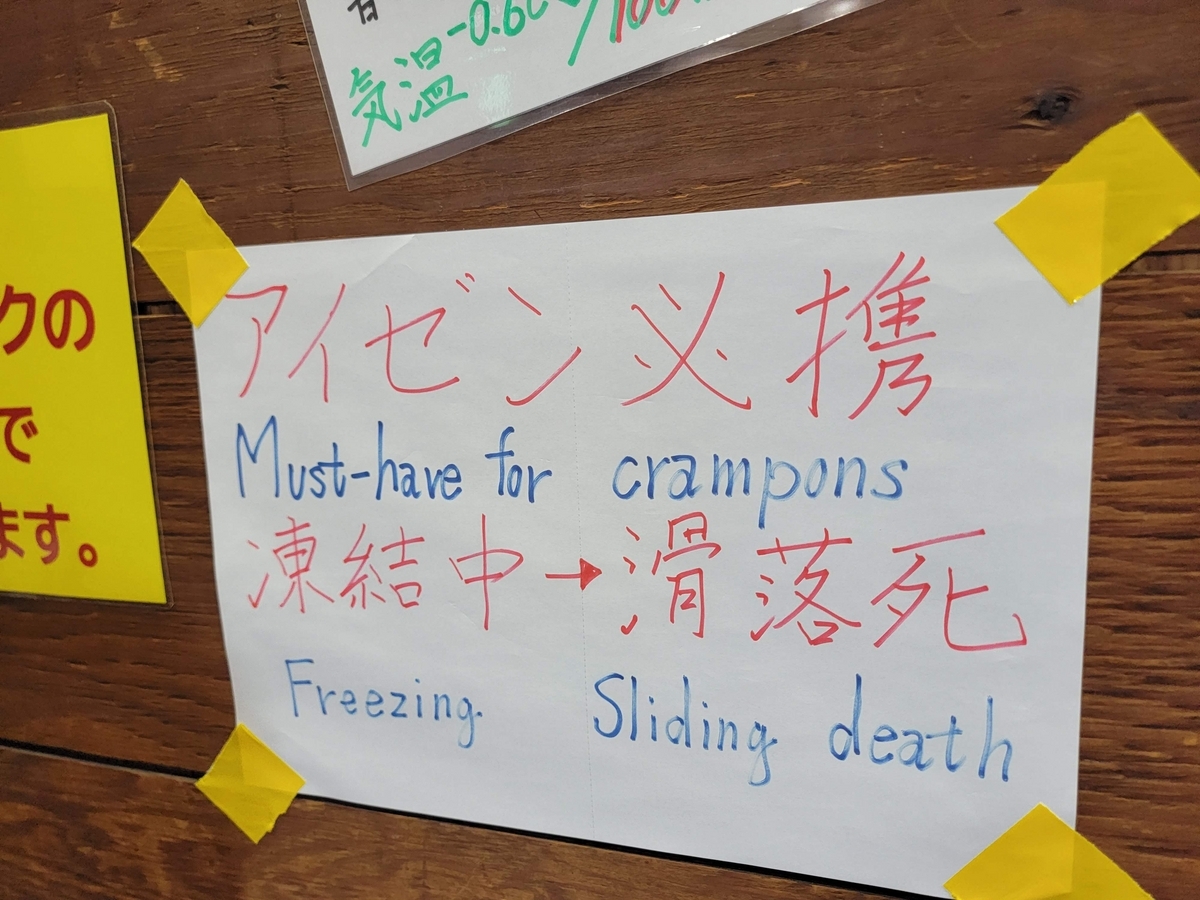 気温-0.6℃/100
クの
で
ます。
アイゼン必携
Must-have for crampons
凍結中→滑落死
Freezing Sliding death